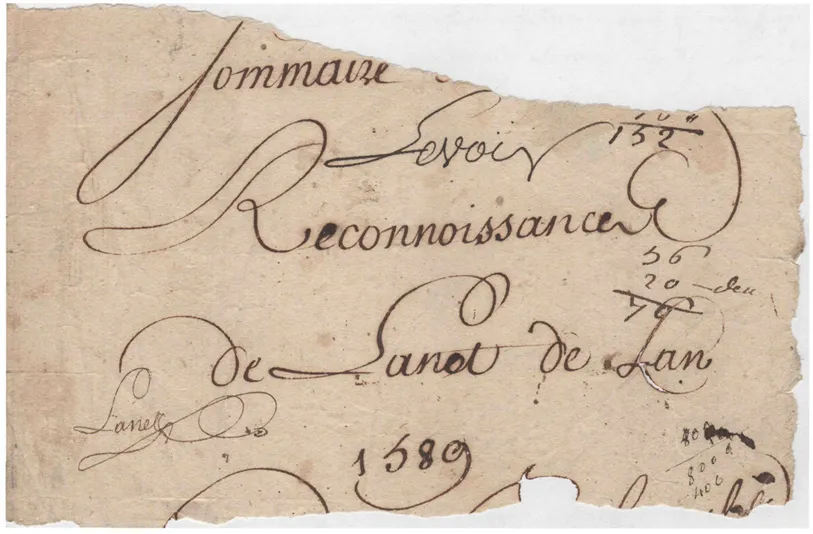 Sommaire
Levoir
152
Reconnoissances
56
20 den
76
de Lanet de Lan
Lanet
1589
800
400